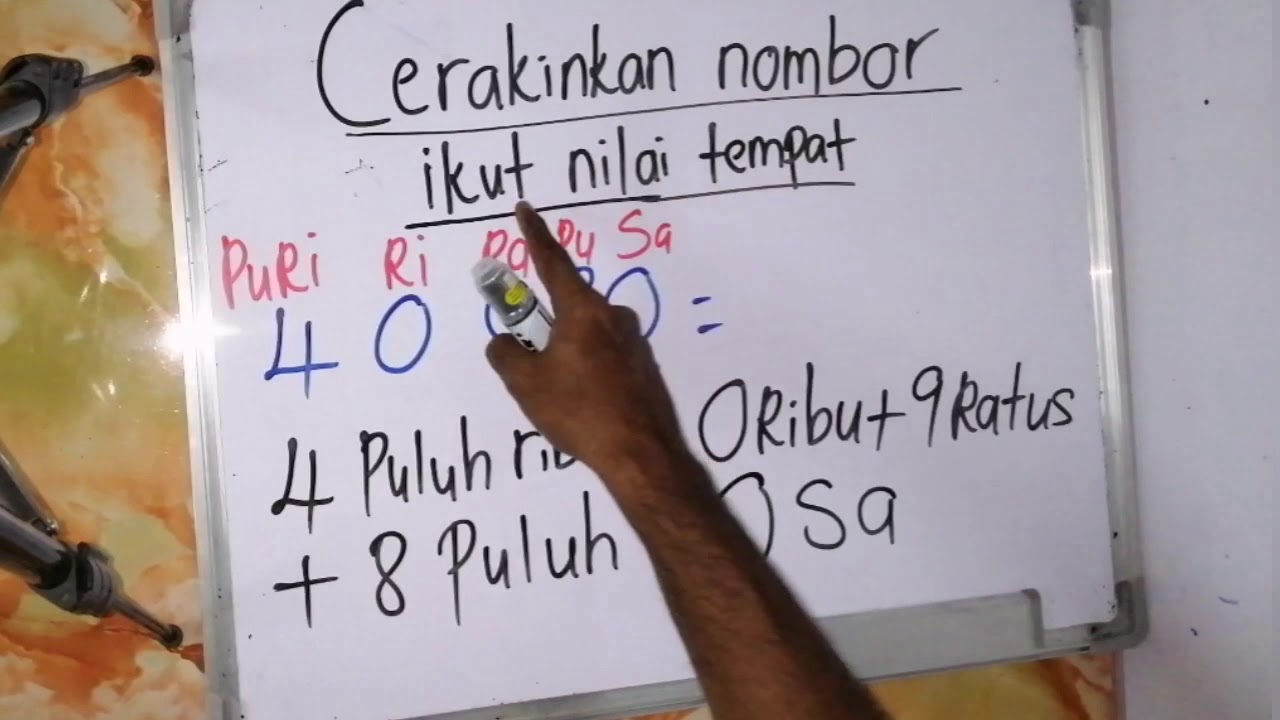 Cerakinkan nombor
ikut nilai tempat
PuRi Ri Ra Pu Sa
4 0 0 =
4 Puluh 0 Ribu + 9 Ratus
+ 8 Puluh 0 Sa